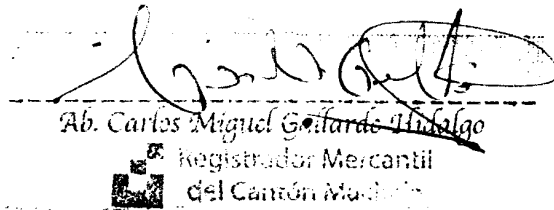 Ab. Carlos Miguel Gallardo Hidalgo
Registrador Mercantil
del Cantón Machala